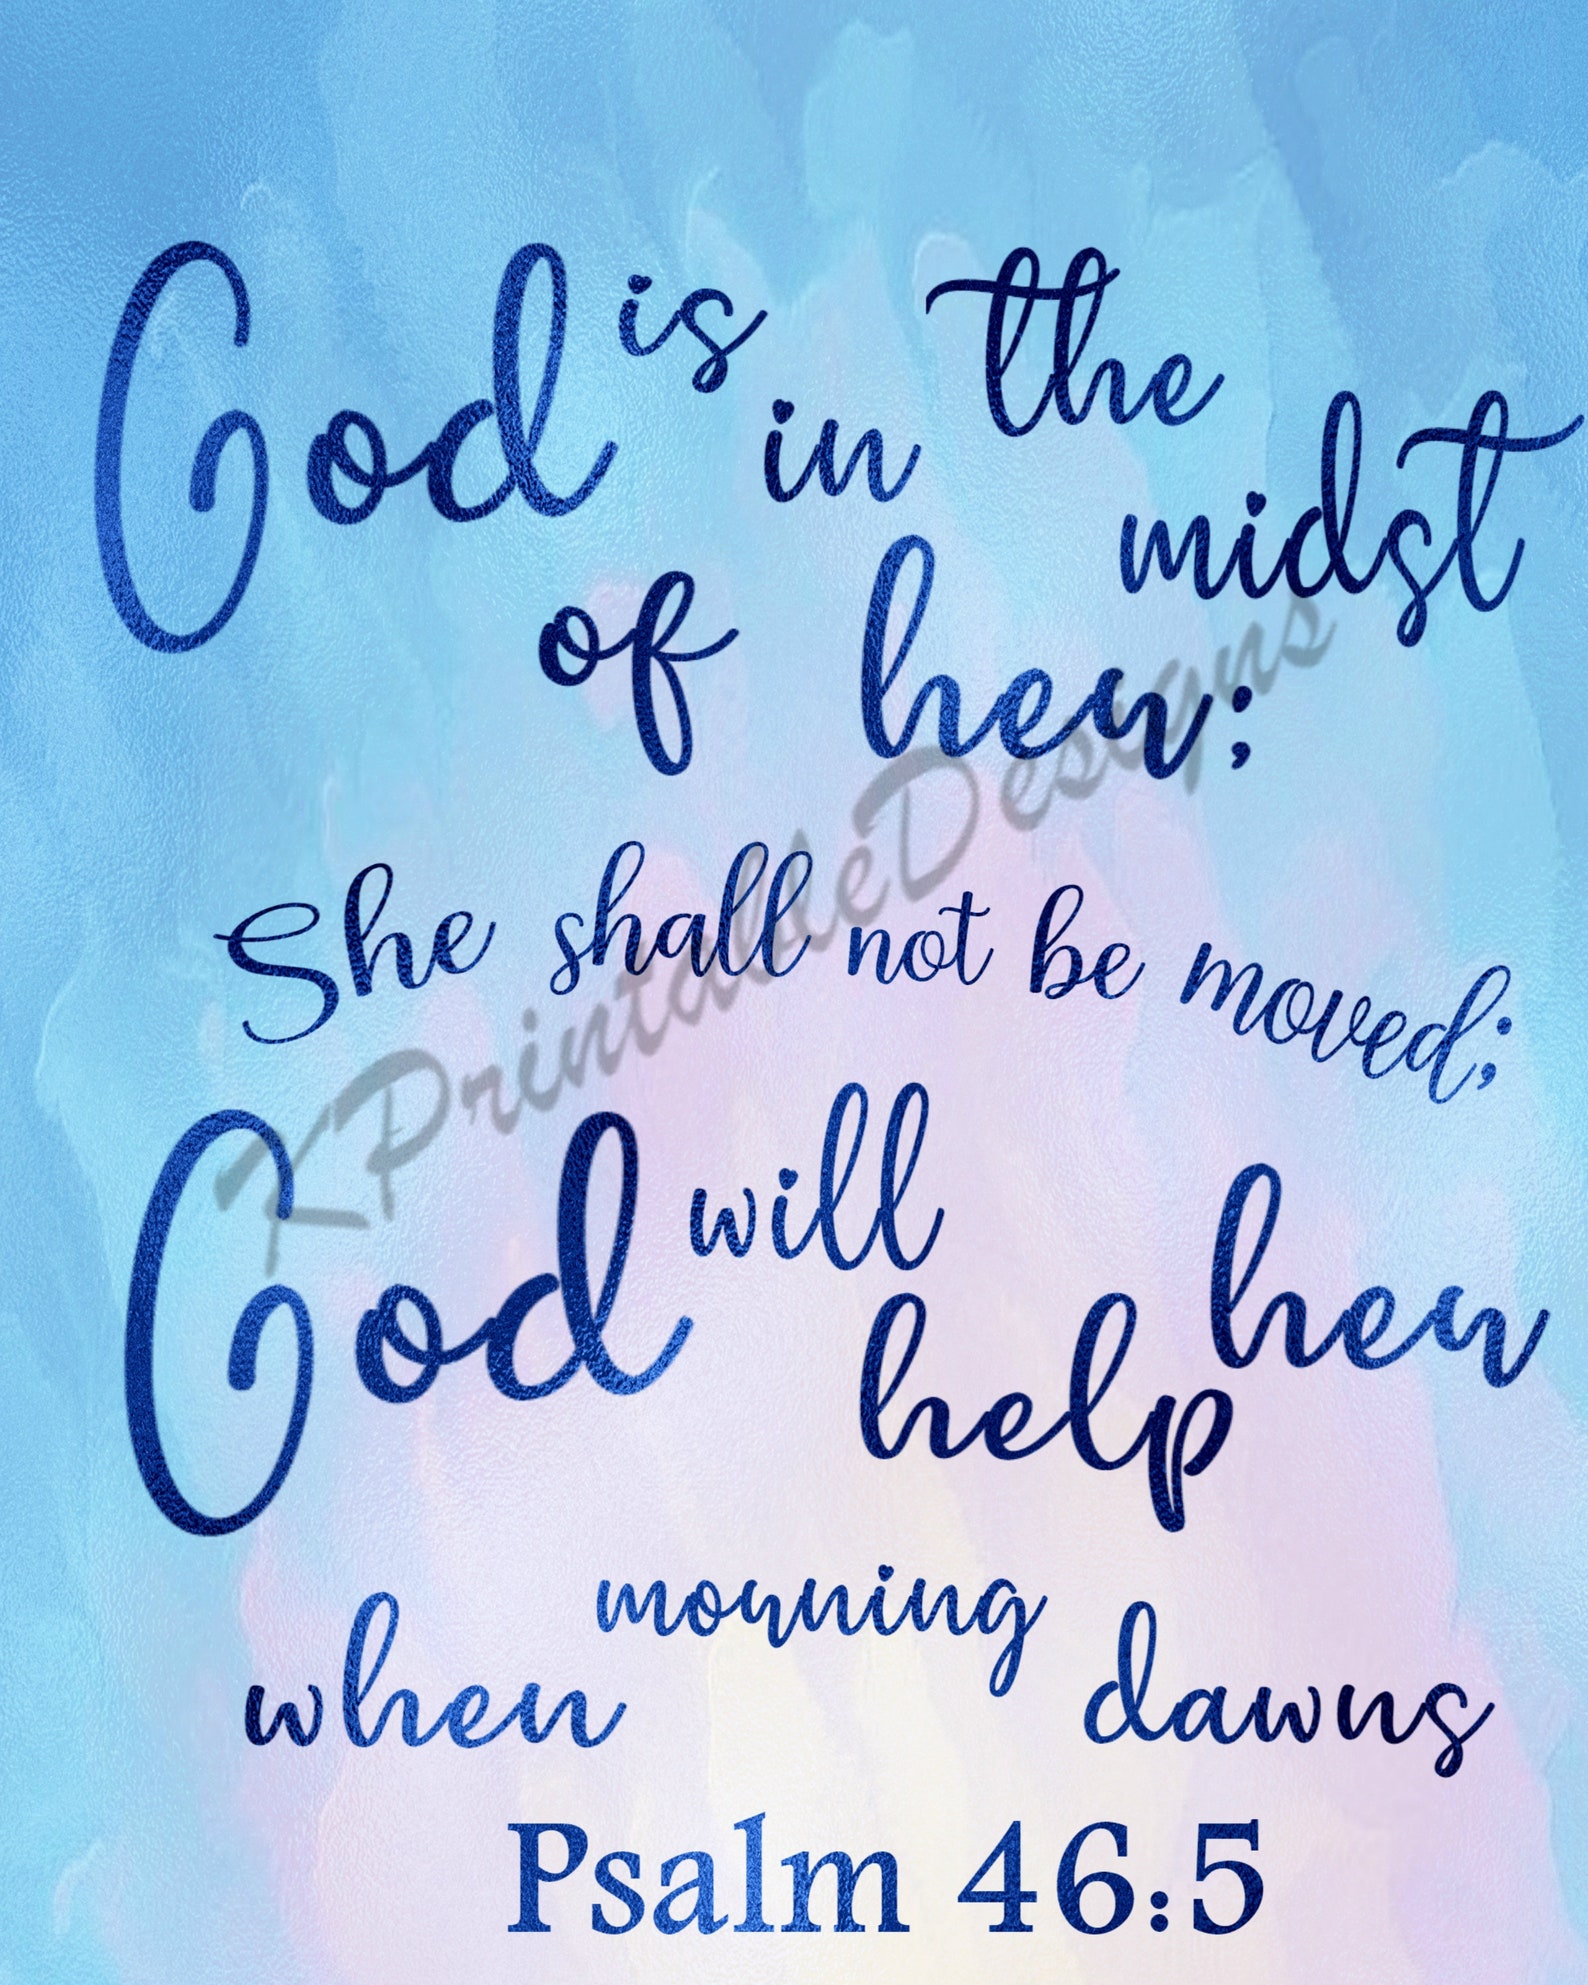 God is in the midst
of her;
She shall not be moved;
God will help her
when morning dawns
Psalm 46:5
KPrintableDesigns